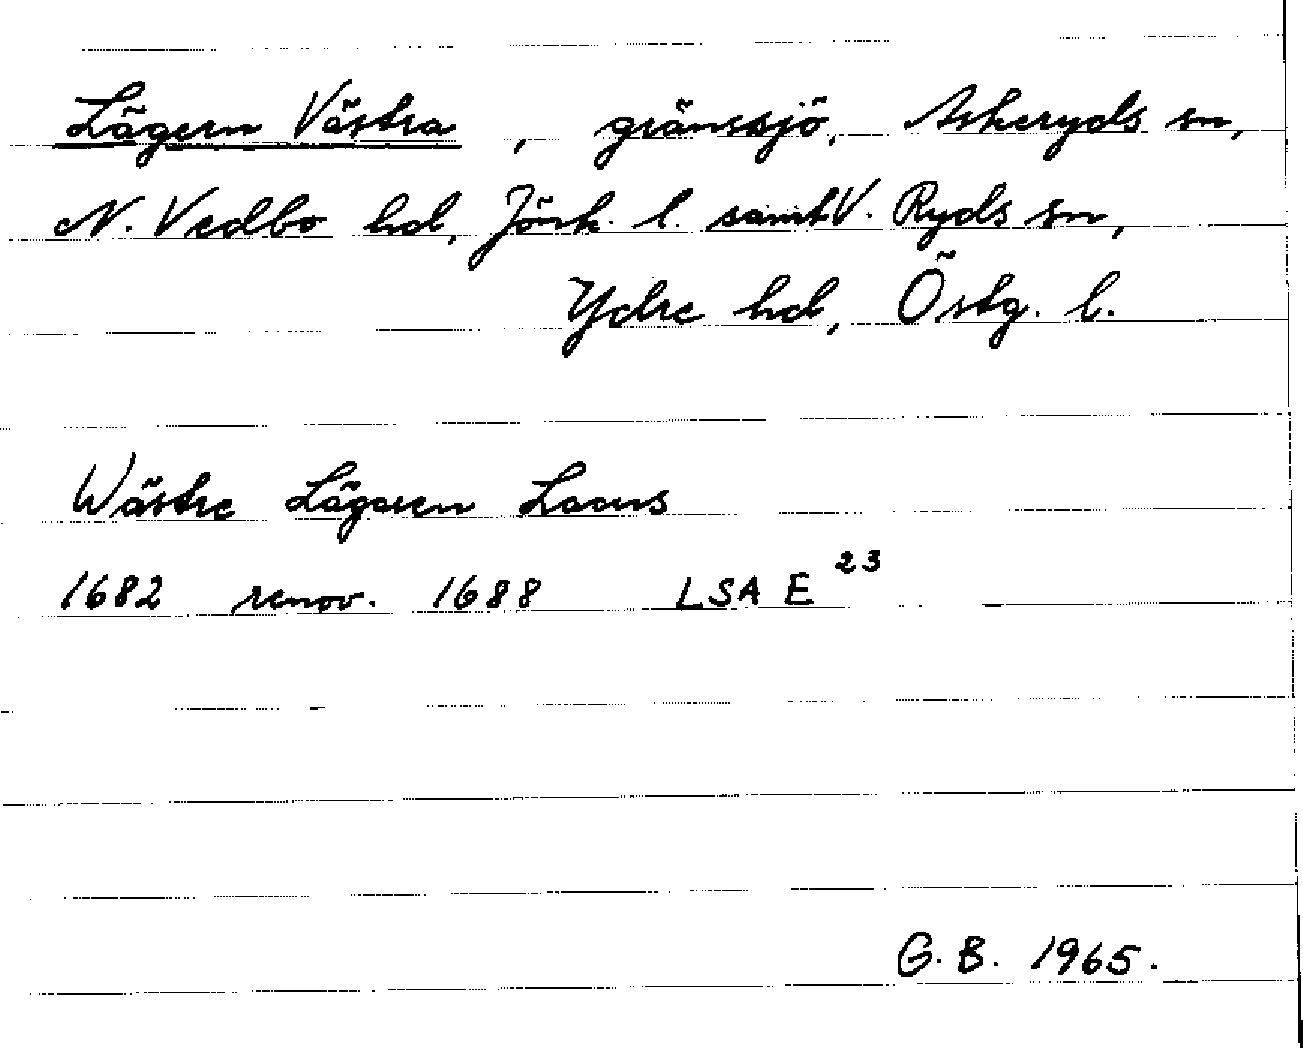 Lägern Västra, gränssjö, Askeryds sn,
N. Vedbo hd, Jönk. l. samt V. Ryds sn,
Ydre hd, Östg. l.
Wästre Lägaren Lacus
1682 renov. 1688 LSA E 23
G. B. 1965.